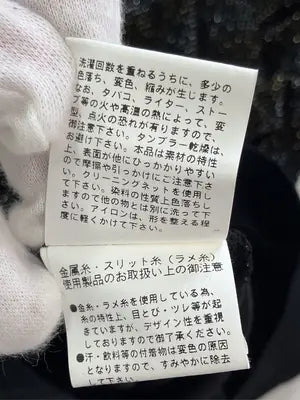 洗濯回数を重ねるうちに、多少の
色落ち、変色、縮みが生じます。
なお、タバコ、ライター、ストー
ブ等の火や高温の熱によって、変
型、点火の恐れが有りますので、
御注意下さい。タンブラー乾燥は、
お避け下さい。本品は素材の特性
上、表面が他にひっかかりやすい
ので摩擦や引っかけにご注意下さ
い。クリーニングネットを使用し
て下さい。染料の性質上色落ちし
ますので他の物とは別に洗って下
さい。アイロンは、形を整える程
度に軽くかけて下さい。
金属糸・スリット糸（ラメ糸）
使用製品のお取扱い上の御注意
●金糸・ラメ糸を使用している為、
糸の特性上、目とび・ツレ等が起
きていますが、デザイン性を重視
しておりますので御了承ください。
●汗・飲料等の付着物は変色の原因
となりますので、すみやかに除去
して下さい。